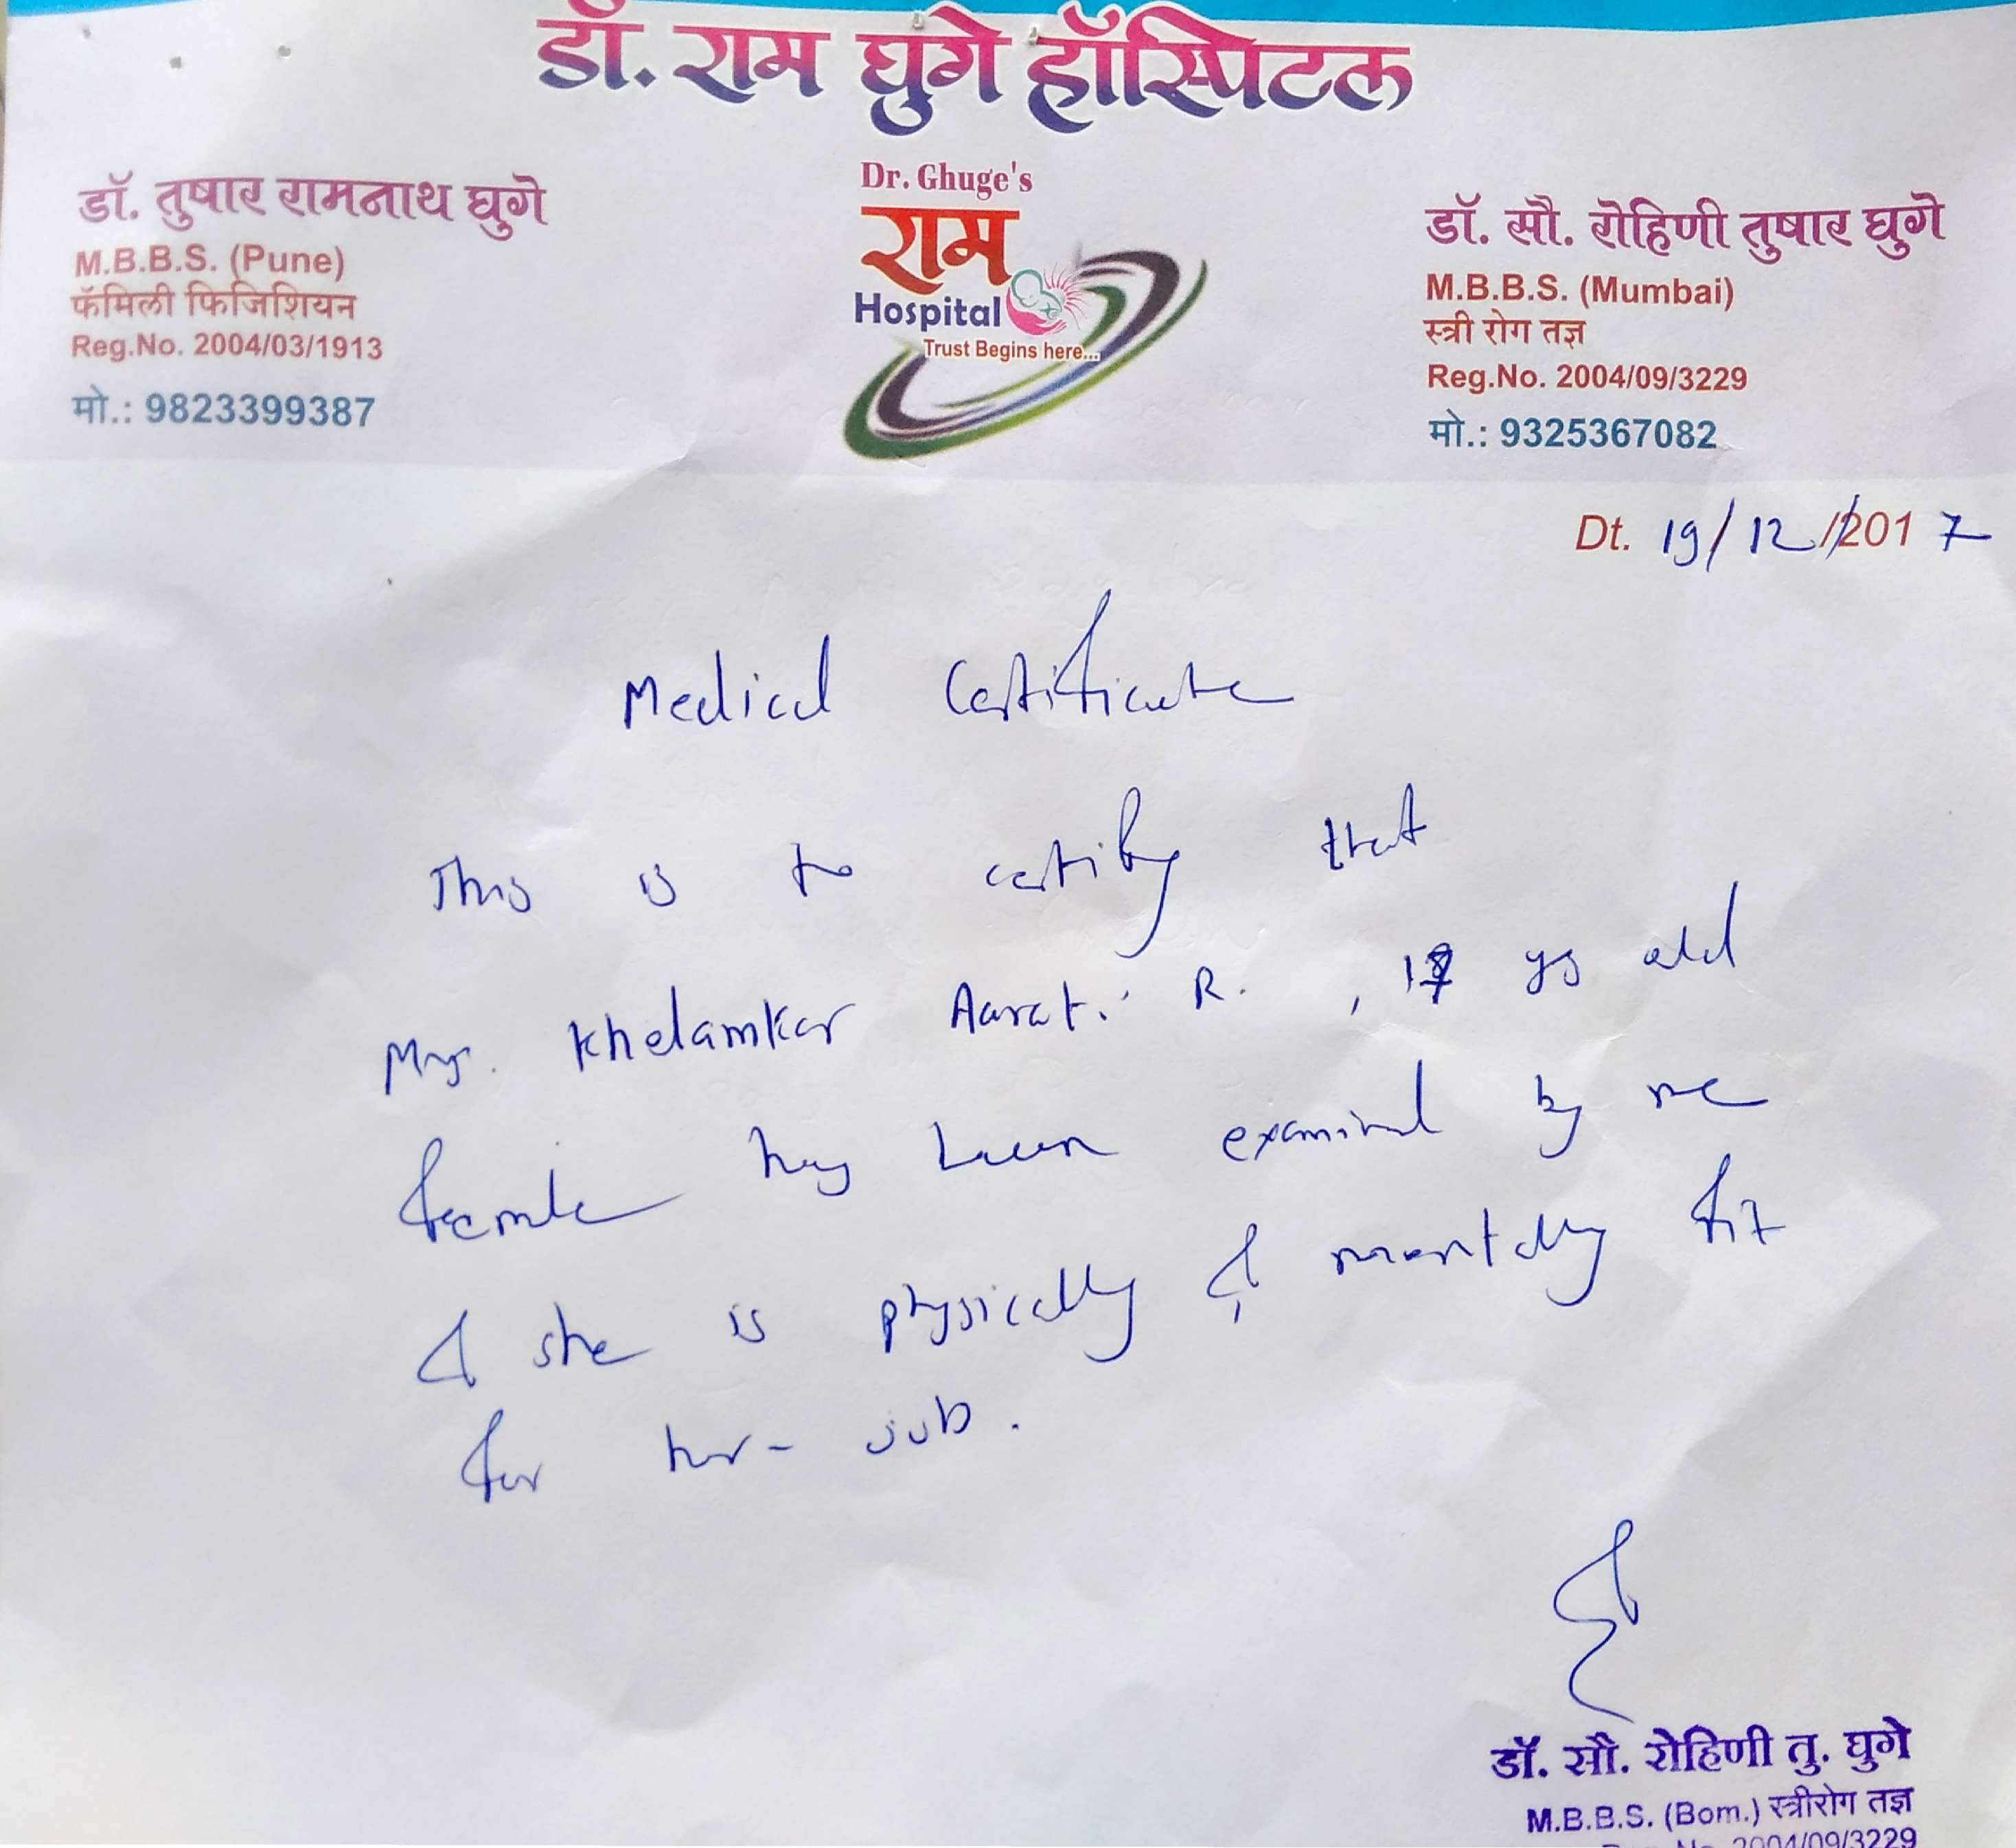 डॉ. राम घुगे हॉस्पिटल
डॉ. तुषार रामनाथ घुगे
M.B.B.S. (Pune)
फॅमिली फिजिशियन
Reg.No. 2004/03/1913
मो.: 9823399387
Dr. Ghuge's
राम
Hospital
Trust Begins here...
डॉ. सौ. रोहिणी तुषार घुगे
M.B.B.S. (Mumbai)
स्त्री रोग तज्ञ
Reg.No. 2004/09/3229
मो.: 9325367082
Dt. 19/12/2017
Medical Certificate
This is to certify that
Mrs. Khelamkar Aarati R. , yrs old
female has been examined by me
& she is physically & mentally fit
for her job.
डॉ. सौ. रोहिणी तु. घुगे
M.B.B.S. (Bom.) स्त्रीरोग तज्ञ
Reg. No. 2004/09/3229